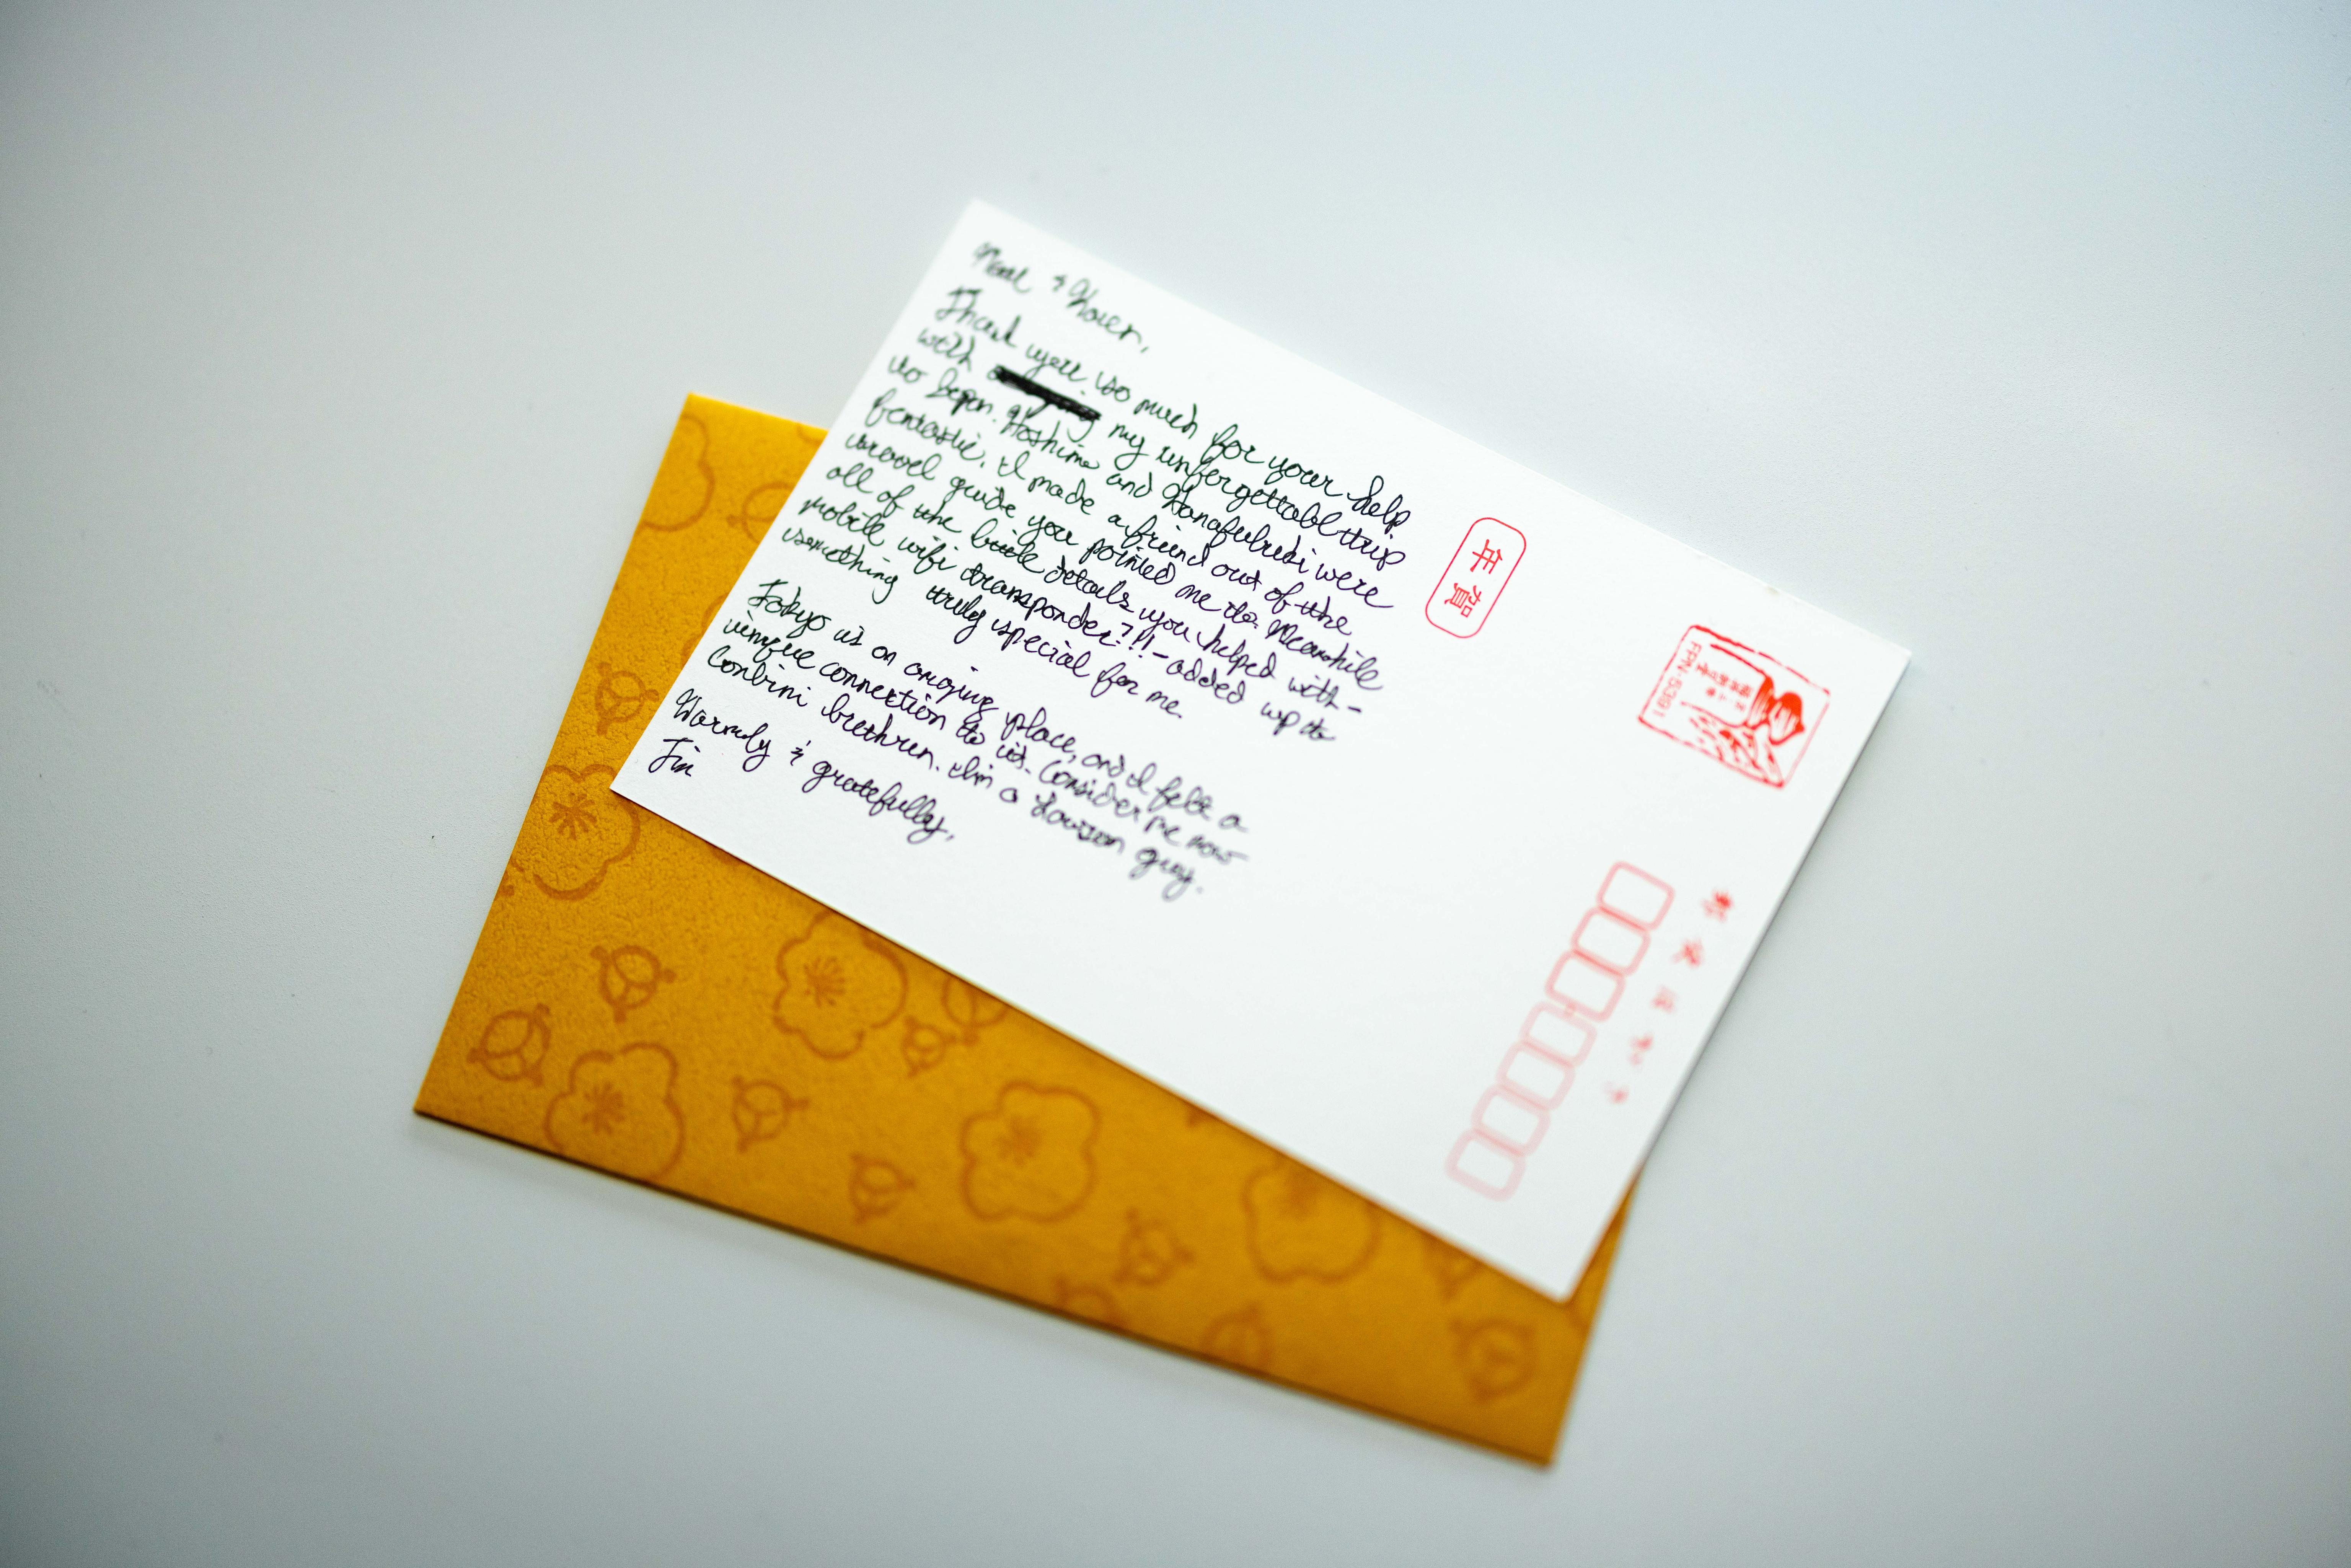 Neal &
Thank you so much for your help
with my unforgettable trip
to Japan. Hoshino and were
fantastic. I made a friend out of the
travel guide you pointed me to. Meanwhile
all of the little details you helped with-
mobile wifi transponder?!!-added up to
something truly special for me.
Tokyo is an amazing place, and I felt a
unique connection to it. Consider me now
Conbini brethren. I'm a Lawson guy.
Warmly & gratefully,
Jim
年賀
FPN-5391